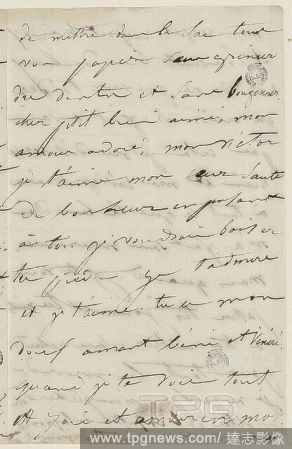 de mettre dans le sac tous
vos papiers sans grogner
du dentre et sans bougonner
cher ptit bien aimé, mon
amour adoré, mon victor
je t'aime mon cœur saute
de bonheur en pensant
à toi. je voudrais baiser
tes pieds. je t'admire
et je t'aime. tu es mon
doux amant béni et vénéré
quand je te vois tout
est joie et amour en moi
TPG
www.tpgnews.com 達志影像